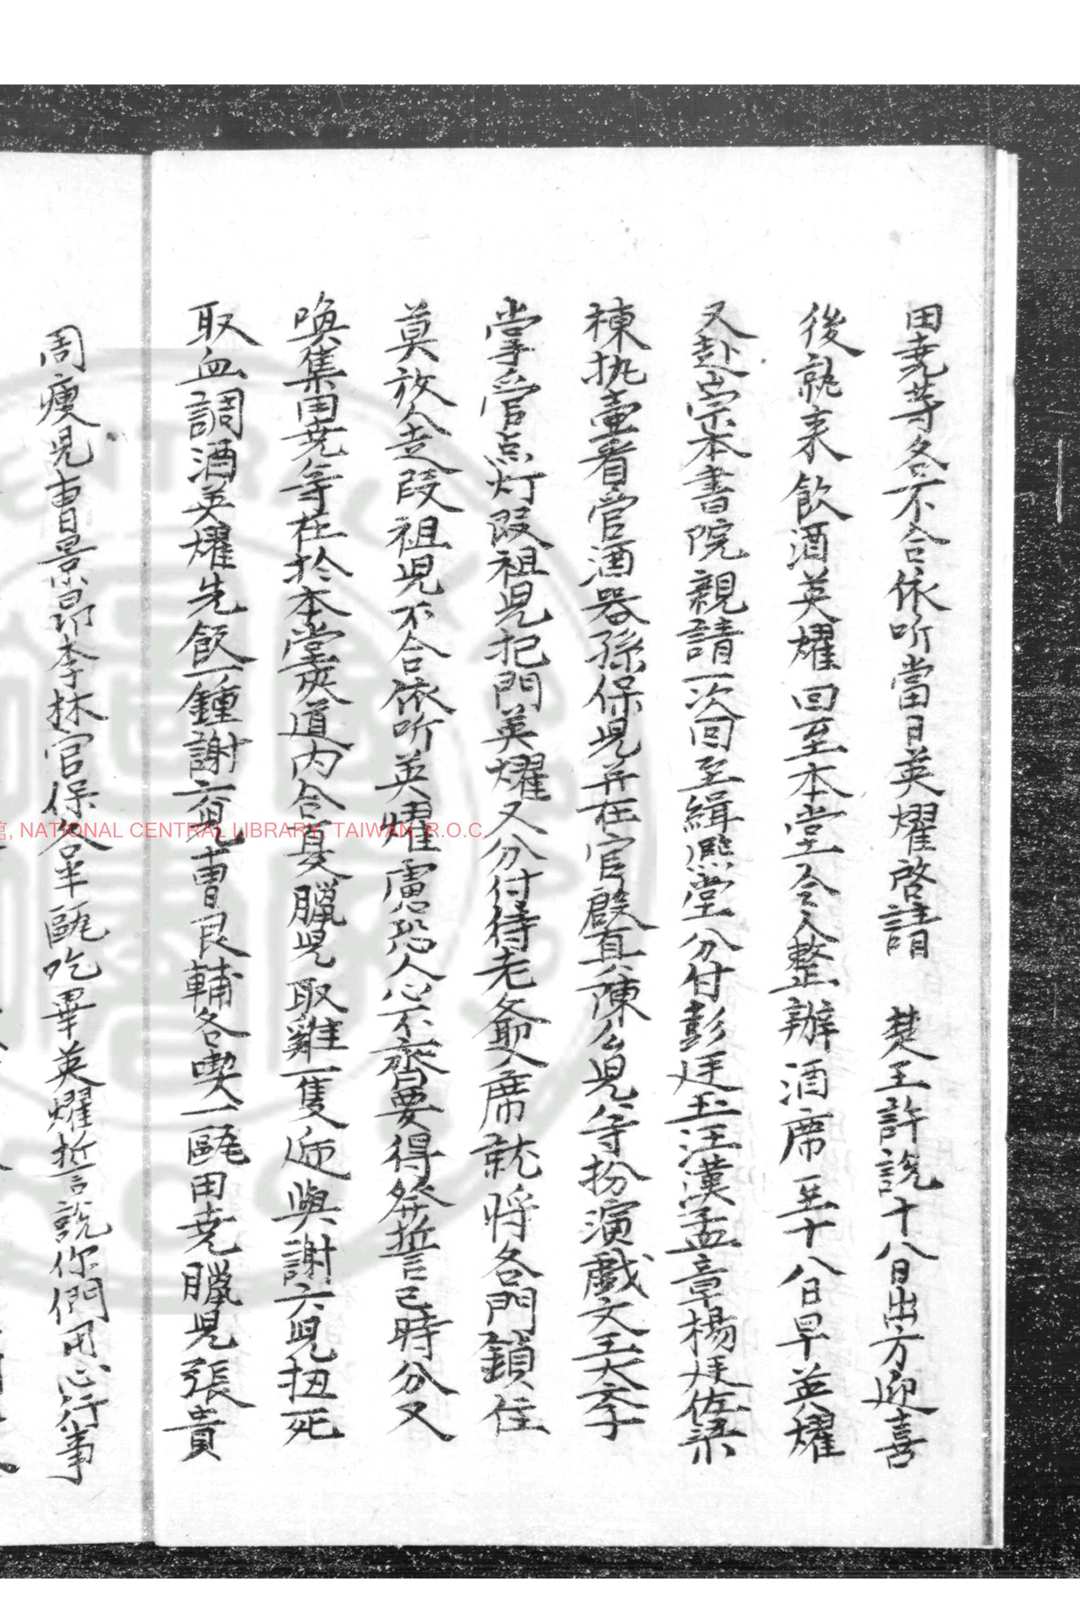 田尭等各不合依听當日英燿啓請　楚王許說十八日出方迎喜
後就来飲酒英燿回至本堂令人整辦酒席至十八日早英燿
又赴宗本書院親請一次回至緝熈堂分付彭廷玉汪漢孟章楊廷佐梁
棟执壷看管酒器孫保児并在官殿直陳么児等扮演戯文王大李
掌管点灯叚祖児把門英燿又分付待老爺入席就將各門鎖住
莫放人走叚祖児不合依听英燿慮恐人心不齊要得發誓言巳時分又
喚集田尭等在於本堂夾道内令夏臘児取雞一隻逓與謝六児扭死
取血調酒英燿先飲一鍾謝六児曹良輔各喫一甌田尭臘児張貴
周瘦児曹景昻李林官保各半甌吃畢英燿誓言說你們用心行事
館, NATIONAL CENTRAL LIBRARY, TAIWAN, R.O.C.